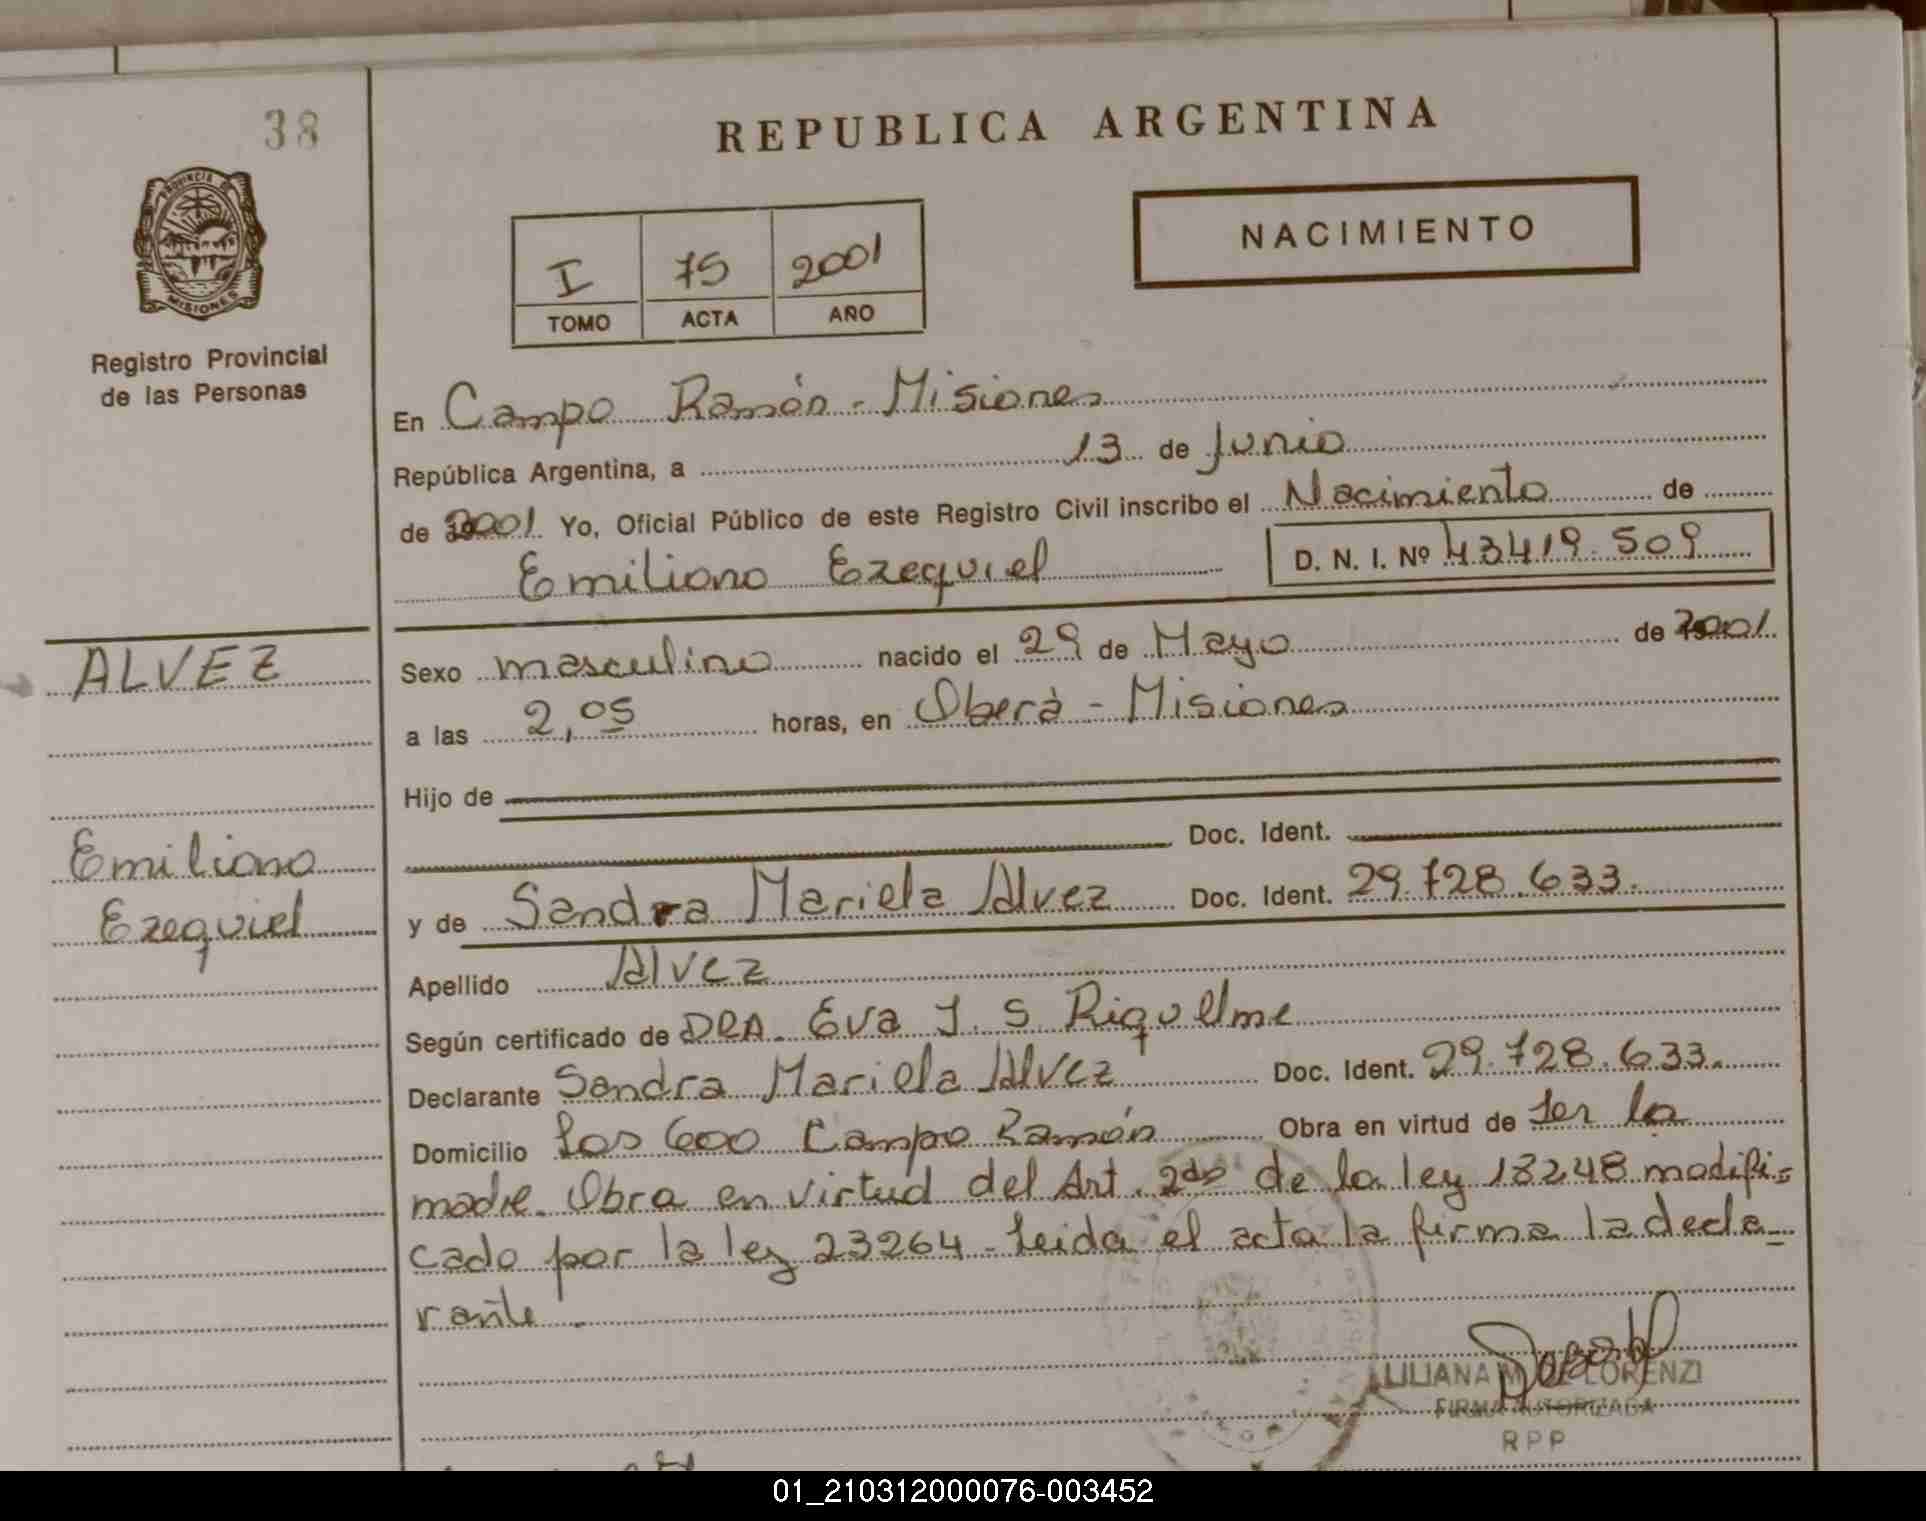 38
REPUBLICA ARGENTINA
PROVINCIA DE
MISIONES
NACIMIENTO
I 75 2001
TOMO ACTA AÑO
Registro Provincial
de las Personas
En Campo Ramón - Misiones
República Argentina, a 13 de Junio
de 2001 Yo, Oficial Público de este Registro Civil inscribo el Nacimiento de
Emiliano Ezequiel D. N. I. Nº 43419.509
ALVEZ
Sexo masculino nacido el 29 de Mayo de 2001
a las 2,05 horas, en Oberá - Misiones
Hijo de
Doc. Ident.
Emiliano
Ezequiel
y de Sandra Mariela Alvez Doc. Ident. 29.728.633.
Apellido Alvez
Según certificado de DRA. Eva J. S. Riquelme
Declarante Sandra Mariela Alvez Doc. Ident. 29.728.633.
Domicilio Los 600 Campo Ramón Obra en virtud de ser la
madre. Obra en virtud del Art. 2do de la ley 18248 modifi-
cado por la ley 23264 - Leida el acta la firma la decla-
rante.
LILIANA M. LORENZI
FIRMA AUTORIZADA
RPP
01_210312000076-003452